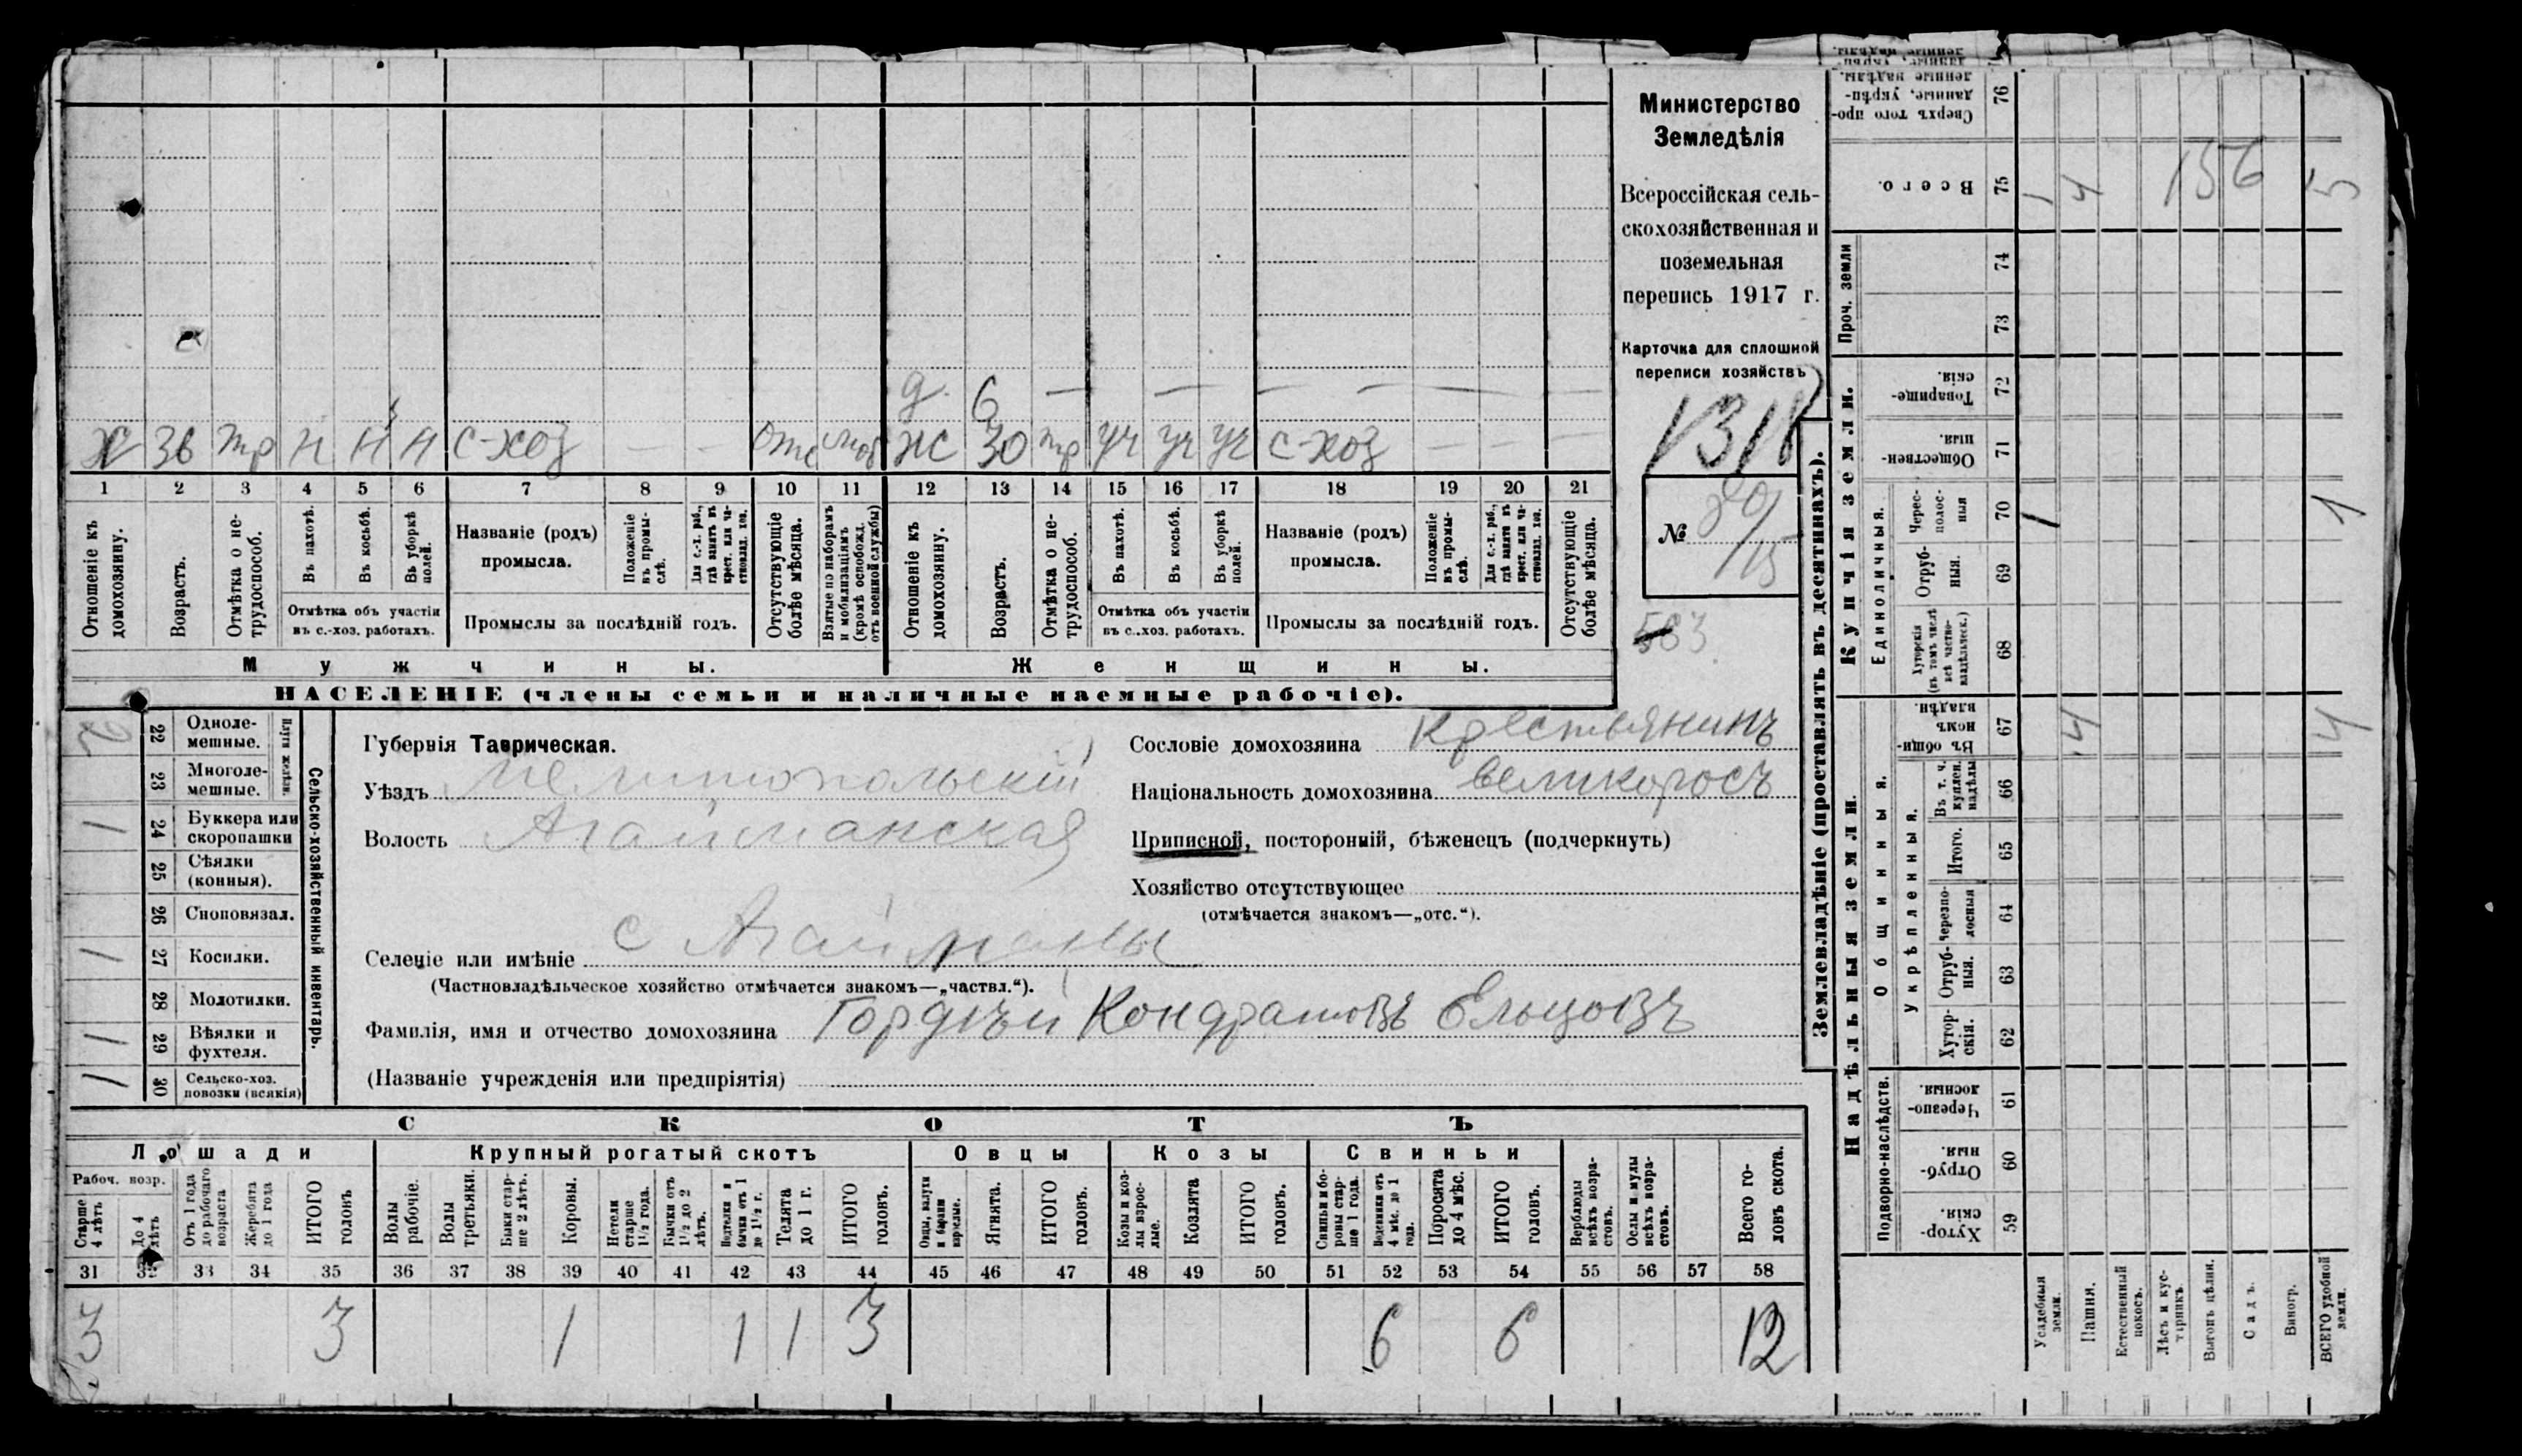 Министерство
Земледѣлія
Всероссійская сель-
скохозяйственная и
поземельная
перепись 1917 г.
Карточка для сплошной
переписи хозяйствъ
1318
№ 80/15
583
д. 6 — — — — — —
Х 36 тр Н Н Н с-хоз — — отс моб ж 30 тр уч уч уч с-хоз — — —
1 2 3 4 5 6 7 8 9 10 11 12 13 14 15 16 17 18 19 20 21
Отношеніе къ домохозяину.
Возрастъ.
Отмѣтка о не-трудоспособ.
Въ пахотѣ.
Въ косьбѣ.
Въ уборкѣ полей.
Отмѣтка объ участіи
въ с.-хоз. работахъ.
Названіе (родъ)
промысла.
Положеніе въ промы-слѣ.
Для с.-х. раб., гдѣ занятъ въ крест. или ча-стновлад. хоз.
Промыслы за послѣдній годъ.
Отсутствующіе болѣе мѣсяца.
Взятые по наборамъ и мобилизаціямъ (кромѣ освобожд. отъ военной службы)
Отношеніе къ домохозяину.
Возрастъ.
Отмѣтка о не-трудоспособ.
Въ пахотѣ.
Въ косьбѣ.
Въ уборкѣ полей.
Отмѣтка объ участіи
въ с.-хоз. работахъ.
Названіе (родъ)
промысла.
Положеніе въ промы-слѣ.
Для с.-х. раб., гдѣ занятъ въ крест. или ча-стновлад. хоз.
Промыслы за послѣдній годъ.
Отсутствующіе болѣе мѣсяца.
Мужчины.
Женщины.
НАСЕЛЕНІЕ (члены семьи и наличные наемные рабочіе).
Сельско-хозяйственный инвентарь.
Плуги желѣзн.
2 22 Одноле-мешные.
23 Многоле-мешные.
1 24 Буккера или скоропашки
25 Сѣялки (конныя).
26 Сноповязал.
1 27 Косилки.
28 Молотилки.
1 29 Вѣялки и фухтеля.
1 30 Сельско-хоз. повозки (всякія)
Губернія Таврическая.
Уѣздъ Мелитопольскій
Волость Агайманская
Селеніе или имѣніе с Агайманы
(Частновладѣльческое хозяйство отмѣчается знакомъ—„частвл.“).
Фамилія, имя и отчество домохозяина Гордѣй Кондратовъ Ельцовъ
(Названіе учрежденія или предпріятія)
Сословіе домохозяина крестьянинъ
Національность домохозяина великоросъ
Приписной, посторонній, бѣженецъ (подчеркнуть)
Хозяйство отсутствующее
(отмѣчается знакомъ—„отс.“).
СКОТЪ
Лошади
Крупный рогатый скотъ
Овцы
Козы
Свиньи
Рабоч. возр.
Старше 4 лѣтъ
До 4 лѣтъ
Отъ 1 года до рабочаго возраста
Жеребята до 1 года
ИТОГО головъ
Волы рабочіе.
Волы третьяки.
Быки стар-ше 2 лѣтъ.
Коровы.
Нетели старше 1½ года.
Бычки отъ 1½ до 2 лѣтъ.
Нетелки и бычки отъ 1 до 1½ г.
Телята до 1 г.
ИТОГО головъ.
Овцы, валухи и бараны взрослые.
Ягнята.
ИТОГО головъ.
Козы и коз-лы взрос-лые.
Козлята
ИТОГО головъ.
Свиньи и бо-ровы стар-ше 1 года.
Подсвинки отъ 4 мѣс. до 1 года.
Поросята до 4 мѣс.
ИТОГО головъ.
Верблюды всѣхъ возра-стовъ.
Ослы и мулы всѣхъ возра-стовъ.
Всего го-ловъ скота.
31 32 33 34 35 36 37 38 39 40 41 42 43 44 45 46 47 48 49 50 51 52 53 54 55 56 57 58
3 3 1 1 1 3 6 6 12
Землевладѣніе (проставлять въ десятинахъ).
Купчія земли.
Надѣльныя земли.
Сверхъ того про-данные, укрѣп-ленные надѣлы. 76
Всего. 75 1 4 156 5
Проч. земли
74
73
Товарище-скія. 72
Обществен-ныя. 71
Единоличныя.
Черес-полос-ныя 70 1 1
Отруб-ныя. 69
Хуторскія (въ томъ числѣ всѣ частно-владѣльческ.) 68
Общинныя.
Въ общи-номъ владѣн. 67 4 4
Укрѣпленныя.
Въ т. ч. куплен. надѣлы 66
Итого. 65
Черезпо-лосныя 64
Отруб-ныя. 63
Хутор-скія. 62
Подворно-наслѣдств.
Черезпо-лосныя. 61
Отруб-ныя. 60
Хутор-скія. 59
Усадебныя земли.
Пашня.
Естественный покосъ.
Лѣсъ и кус-тарникъ.
Выгонъ цѣлин.
Садъ.
Виногр.
ВСЕГО удобной земли.